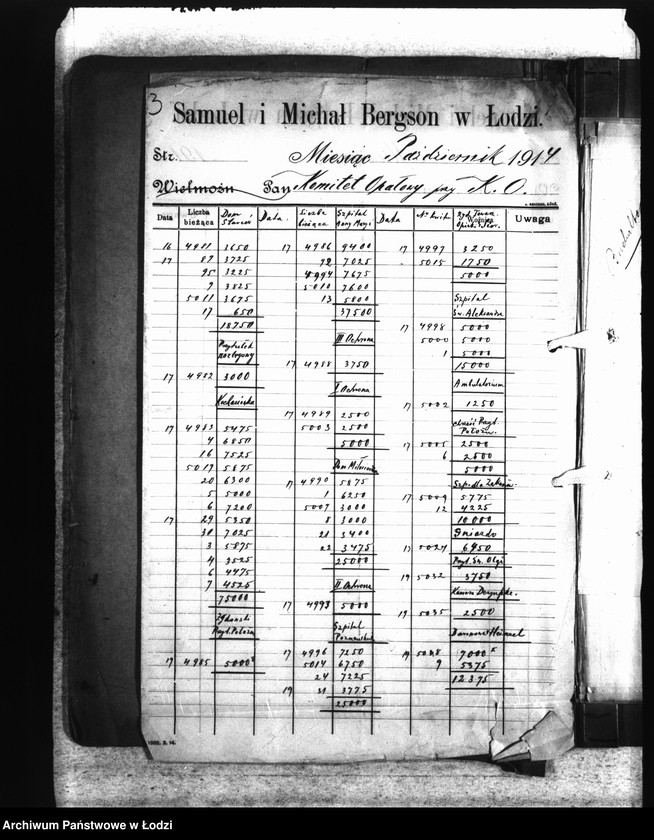 3
Samuel i Michał Bergson w Łodzi.
Str.
Miesiąc Październik 1914
Wielmożn Pan Komitet Opałowy przy K. O.
Data Liczba bieżąca Dom Starców Data. Liczba bieżąca Szpital Anny Maryi Data № kwitu Uwaga
16 4981 3650 17 4986 9400 17 4997 3250
17 89 3725 92 7025 5015 1750
95 3225 4994 7675 5000
9 3825 5010 7600
5011 3675 13 5800 Szpital
17 650 37500 Św. Aleksandra
18750 17 4998 5000
Przytułek noclegowy III Ochrona 5000 5000
1 5000
17 4988 3750 15000
17 4982 3000 I Ochrona Ambulatorium
Kochanówka 17 5002 1250
17 4989 2500
17 4983 5475 5003 2500
4 6850 5000 17 5005 2500
16 7525 6 2500
5019 5875 5000
20 6300 17 4990 5875
5 5000 1 6250 17 5009 5775
6 7200 5007 3000 12 4225
17 29 5350 8 3000 10000
30 7025 21 3400 Gniazdo
3 5875 22 3475 17 5024 6950
4 3525 25000 Przyt. Św. Olgi
6 4475 19 5032 3750
7 4525 II Ochrona
75000 17 4993 5000 19 5035 2500
Szpital Poznańskich
17 4996 7250 19 5038 7000
17 4985 5000 5014 6750 9 5375
24 7225 12375
19 31 3775
25000
Archiwum Państwowe w Łodzi